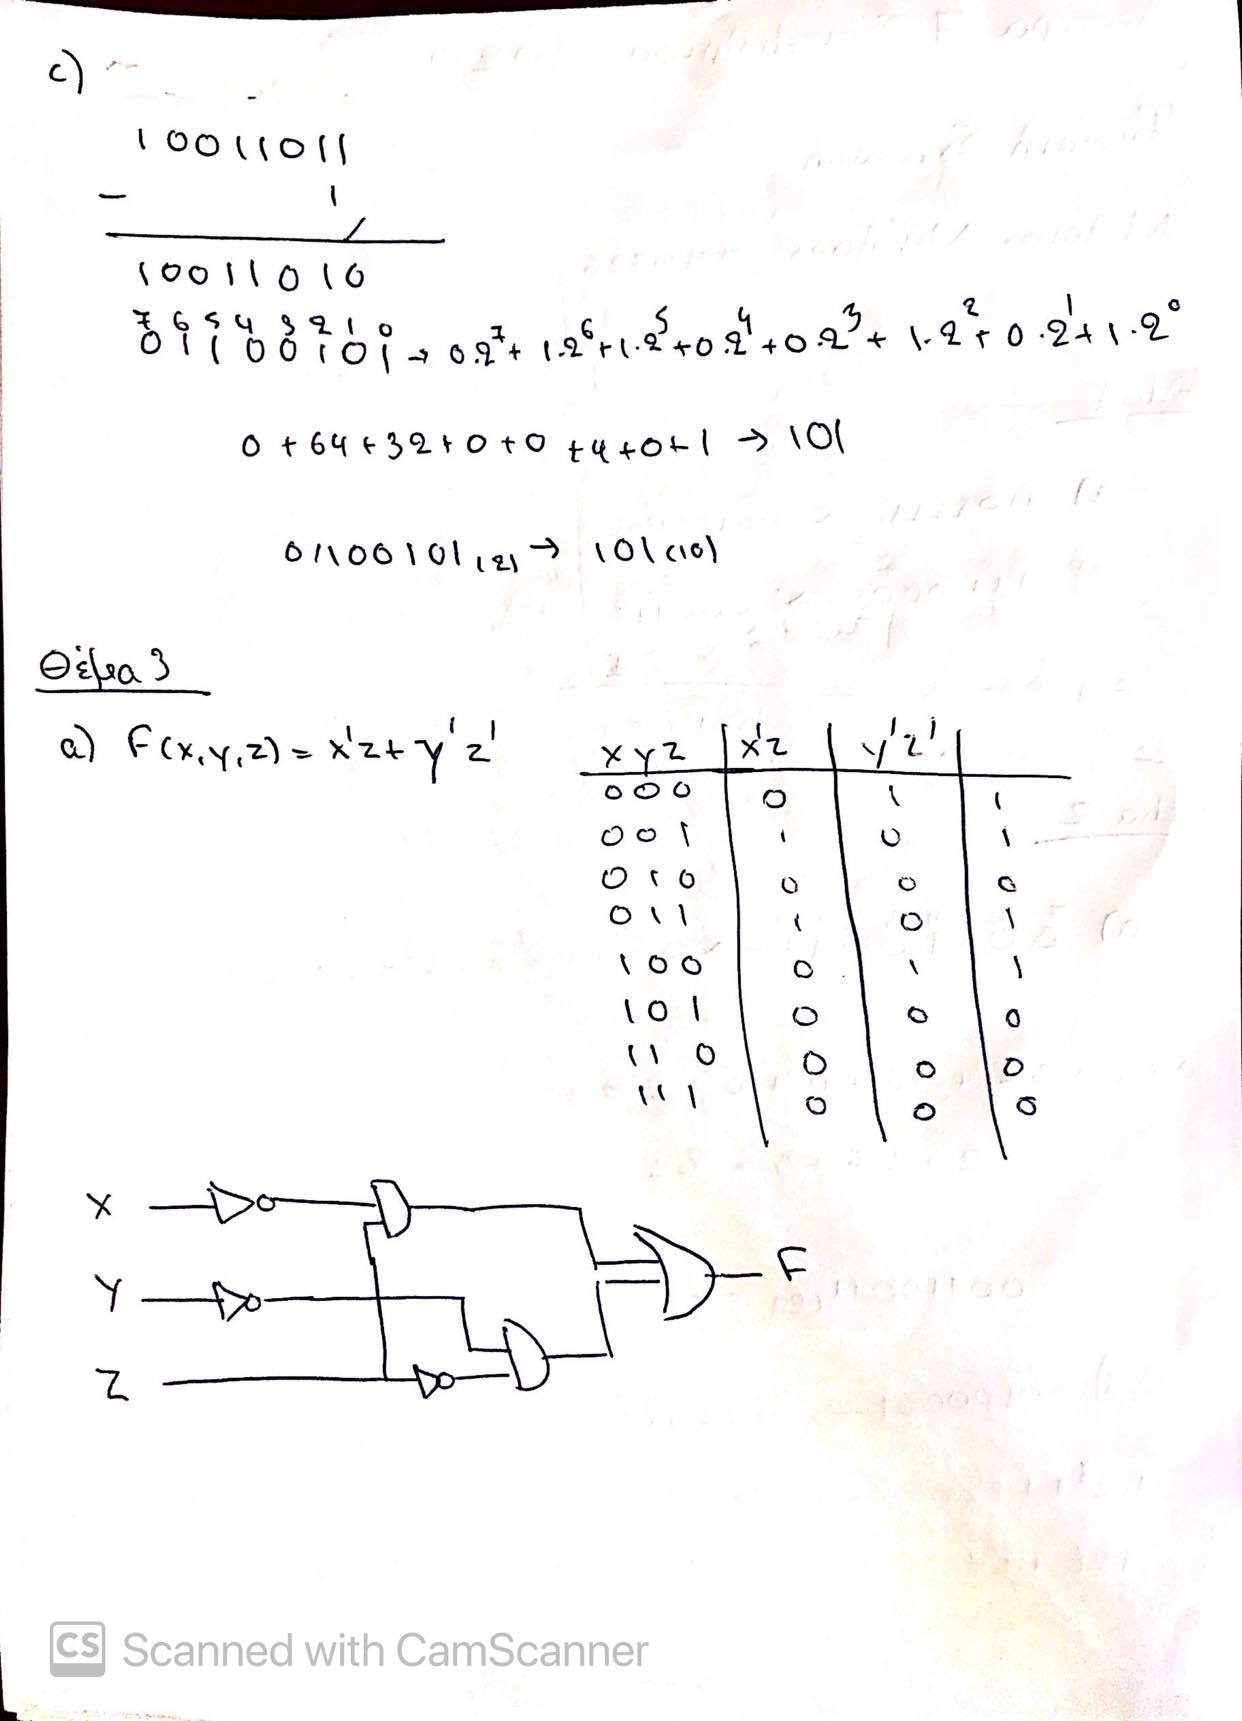 c)
10011011
- 1
10011010
7 6 5 4 3 2 1 0
01100101 → 0.2⁷+ 1.2⁶+1.2⁵+0.2⁴+0.2³+ 1.2²+ 0.2¹+1.2⁰
0 + 64 + 32 + 0 + 0 + 4 + 0 + 1 → 101
01100101 (2) → 101 (10)
Θέμα 3
a) F(x,y,z) = x'z + y'z'
x y z | x'z | y'z' |
0 0 0 | 0 | 1 | 1
0 0 1 | 1 | 0 | 1
0 1 0 | 0 | 0 | 0
0 1 1 | 1 | 0 | 1
1 0 0 | 0 | 1 | 1
1 0 1 | 0 | 0 | 0
1 1 0 | 0 | 0 | 0
1 1 1 | 0 | 0 | 0
X
F
Y
Z
CS Scanned with CamScanner